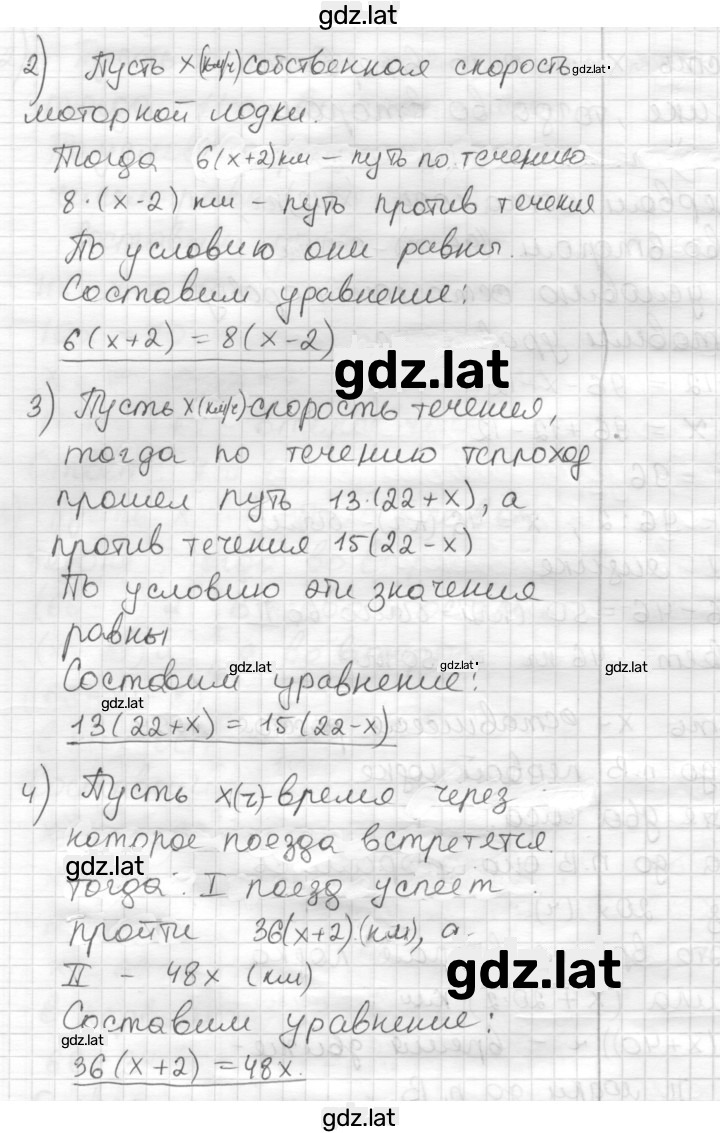 gdz.lat
2) Пусть x(км/ч) собственная скорость gdz.lat
моторной лодки.
Тогда 6(x+2)км – путь по течению
8·(x-2) км – путь против течения
По условию они равны.
Составим уравнение:
6(x+2) = 8(x-2)
gdz.lat
3) Пусть x(км/ч) скорость течения,
тогда по течению теплоход
прошел путь 13·(22+x), а
против течения 15(22-x)
По условию эти значения
равны
gdz.lat gdz.lat gdz.lat
Составим уравнение:
gdz.lat
13(22+x) = 15(22-x)
4) Пусть x(ч)-время через
которое поезда встретятся.
gdz.lat
Тогда I поезд успеет
пройти 36(x+2) (км), а
II – 48x (км)
gdz.lat
Составим уравнение:
gdz.lat
36(x+2) = 48x.
gdz.lat